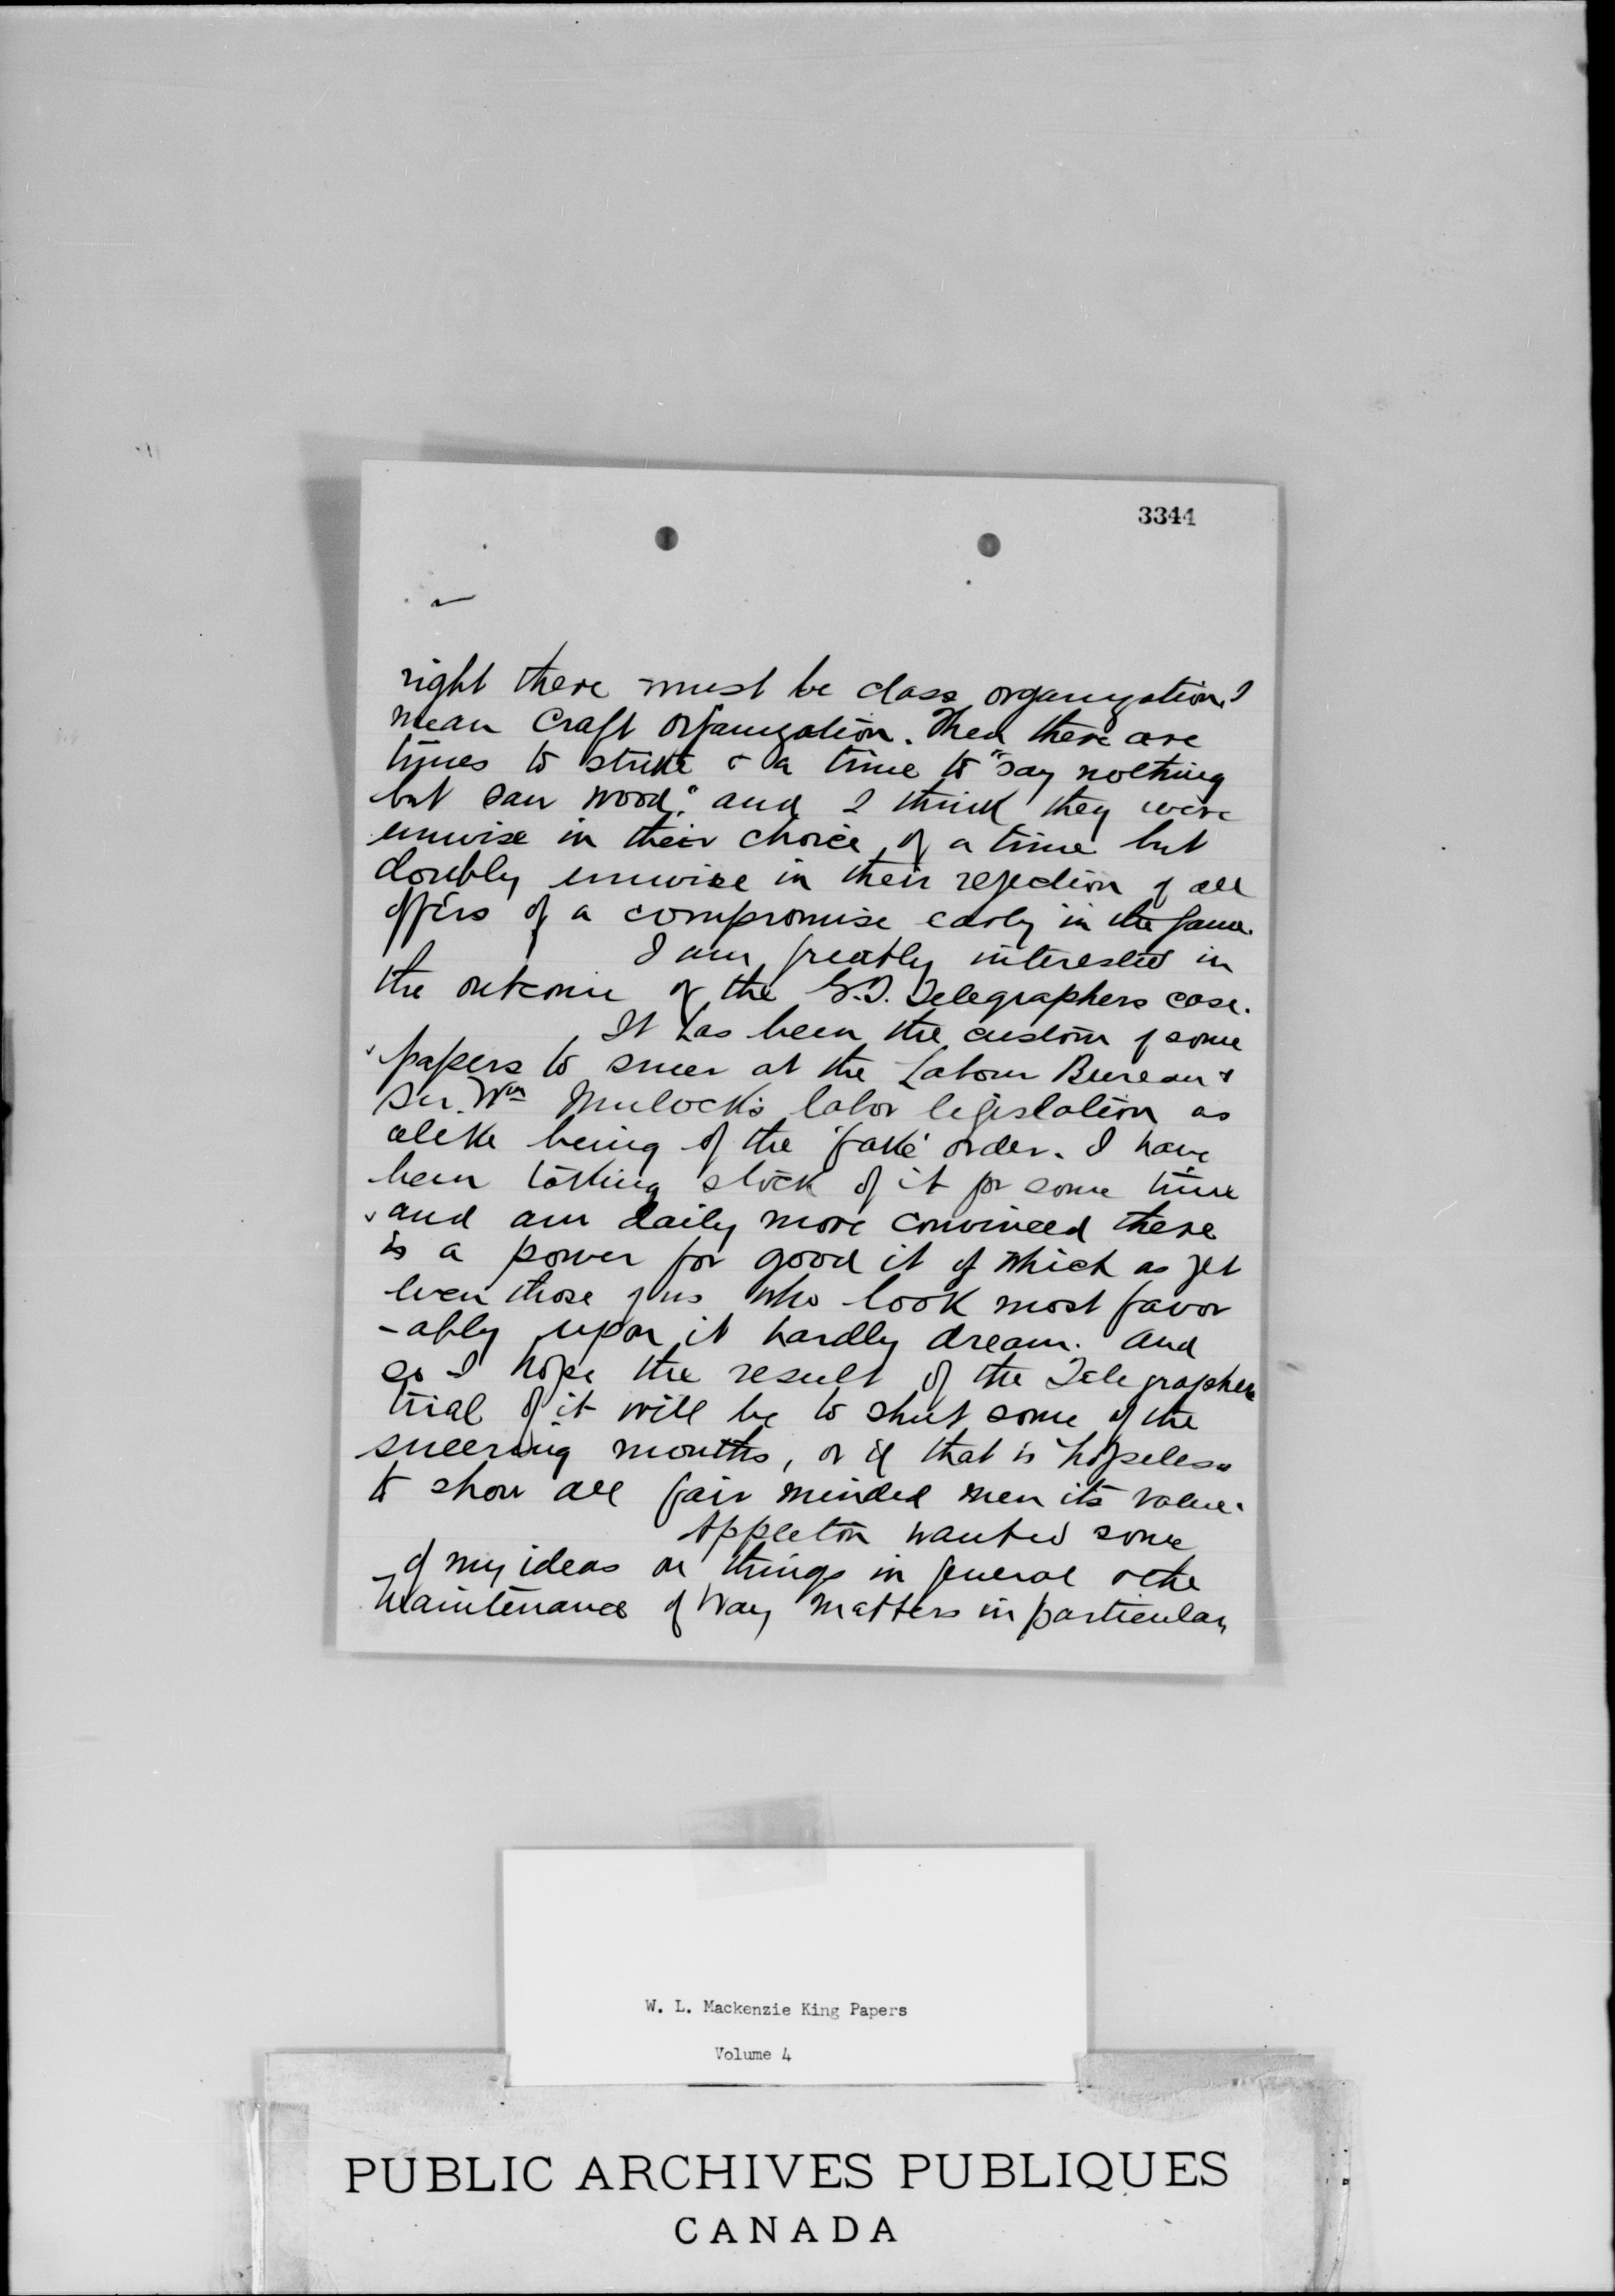 3344
right there must be class organization, I
mean Craft organization. Then there are
times to strike & a time to "say nothing
but saw wood." and I think they were
unwise in their choice of a time but
doubly unwise in their rejection of all
offers of a compromise early in the game.
I am greatly interested in
the outcome of the G.T. Telegraphers case.
It has been the custom of some
papers to sneer at the Labour Bureau &
Sir. Wm Mulock's labor legislation as
alike being of the 'fake' order. I have
been taking stock of it for some time
and am daily more convinced there
is a power for good it of which as yet
even those of us who look most favor
-ably upon it hardly dream. And
so I hope the result of the Telegraphers
trial of it will be to shut some of the
sneering mouths, or if that is hopeless
to show all fair minded men its value.
Appleton wanted some
of my ideas on things in general & the
Maintenance of Way matters in particular,
W. L. Mackenzie King Papers
Volume 4
PUBLIC ARCHIVES PUBLIQUES
CANADA